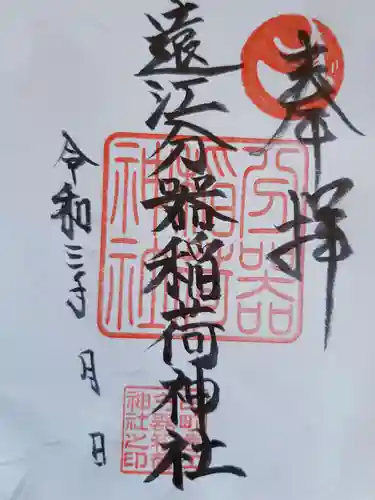 奉拝
遠江分器稲荷神社
分器
稲荷
神社
令和三年 月 日
神社之印